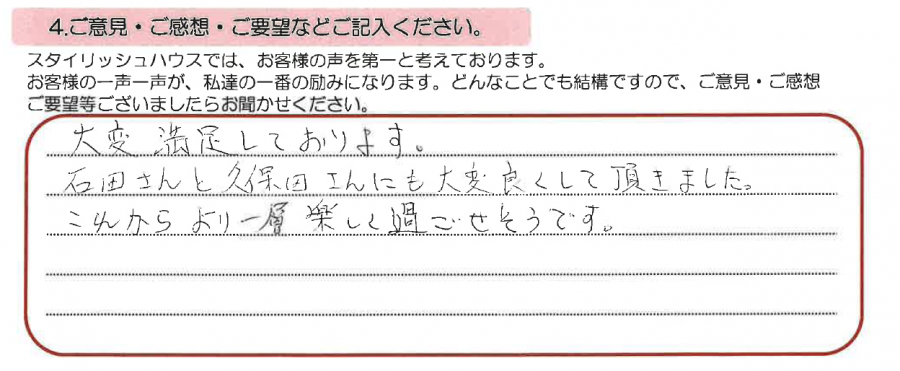 4.ご意見・ご感想・ご要望などご記入ください。
スタイリッシュハウスでは、お客様の声を第一と考えております。
お客様の一声一声が、私達の一番の励みになります。どんなことでも結構ですので、ご意見・ご感想
ご要望等ございましたらお聞かせください。
大変満足しております。
石田さんと久保田さんにも大変良くして頂きました。
これからより一層楽しく過ごせそうです。